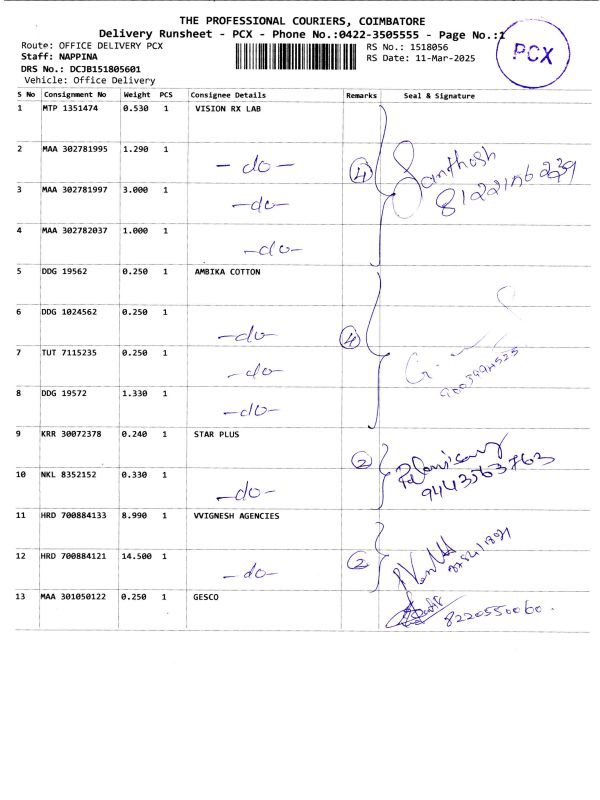 THE PROFESSIONAL COURIERS, COIMBATORE
Delivery Runsheet - PCX - Phone No.:0422-3505555 - Page No.:1
PCX
Route: OFFICE DELIVERY PCX
RS No.: 1518056
Staff: NAPPINA
RS Date: 11-Mar-2025
DRS No.: DCJB151805601
Vehicle: Office Delivery
S No Consignment No Weight PCS Consignee Details Remarks Seal & Signature
1 MTP 1351474 0.530 1 VISION RX LAB
2 MAA 302781995 1.290 1 -do- 4 Santhosh
3 MAA 302781997 3.000 1 -do-
4 MAA 302782037 1.000 1 -do-
5 DDG 19562 0.250 1 AMBIKA COTTON
6 DDG 1024562 0.250 1 -do- 4
7 TUT 7115235 0.250 1 -do-
8 DDG 19572 1.330 1 -do-
9 KRR 30072378 0.240 1 STAR PLUS 2
10 NKL 8352152 0.330 1 -do- 9443563763
11 HRD 700884133 8.990 1 VVIGNESH AGENCIES
12 HRD 700884121 14.500 1 -do- 2
13 MAA 301050122 0.250 1 GESCO 8220550060.